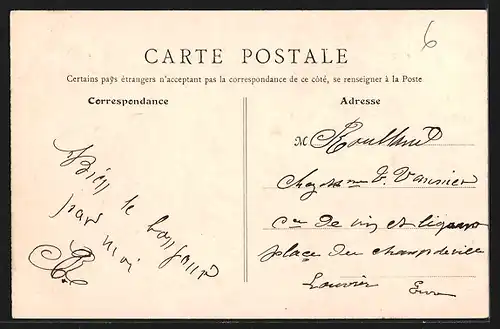 6
CARTE POSTALE
Certains pays étrangers n'acceptent pas la correspondance de ce côté, se renseigner à la Poste
Correspondance
Bien le bonjour
pour moi
R.
Adresse
M Roulland
Chez Mme V. Vannier
Cce de vin et liqueurs
place du champ de ville
Louviers Eure